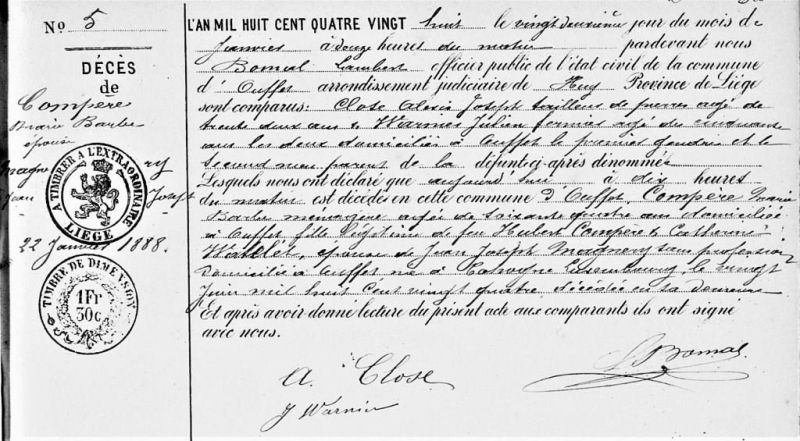 No 5
DÉCÈS
de
Compère
Marie Barbe
épouse
Magnery
Jean Joseph
22 Janvier 1888.
A TIMBRER A L'EXTRAORDINAIRE
LIEGE
TIMBRE DE DIMENSION
1Fr
30c.
L'AN MIL HUIT CENT QUATRE VINGT huit le vingt deuxième jour du mois de
Janvier à douze heures du matin pardevant nous
Bomal Lambert officier public de l'état civil de la commune
d'Ouffet arrondissement judiciaire de Huy Province de Liége
sont comparus: Close Alexis Joseph tailleur de pierres âgé de
trente deux ans & Warnier Julien fermier âgé de cinquante
ans les deux domiciliés à Ouffet le premier gendre et le
second non parent de la défunte ci-après dénommée
Lesquels nous ont déclaré que aujourd'hui à dix heures
du matin est décédée en cette commune d'Ouffet Compère Marie
Barbe ménagère âgée de soixante quatre ans domiciliée
à Ouffet fille légitime de feu Hubert Compère & Catherine
Wallet, épouse de Jean Joseph Magnery sans profession
domicilié à Ouffet née à Luxembourg, le vingt
Juin mil huit cent vingt quatre, décédée en sa demeure
Et après avoir donné lecture du présent acte aux comparants ils ont signé
avec nous.
A. Close
L Bomal
J Warnier